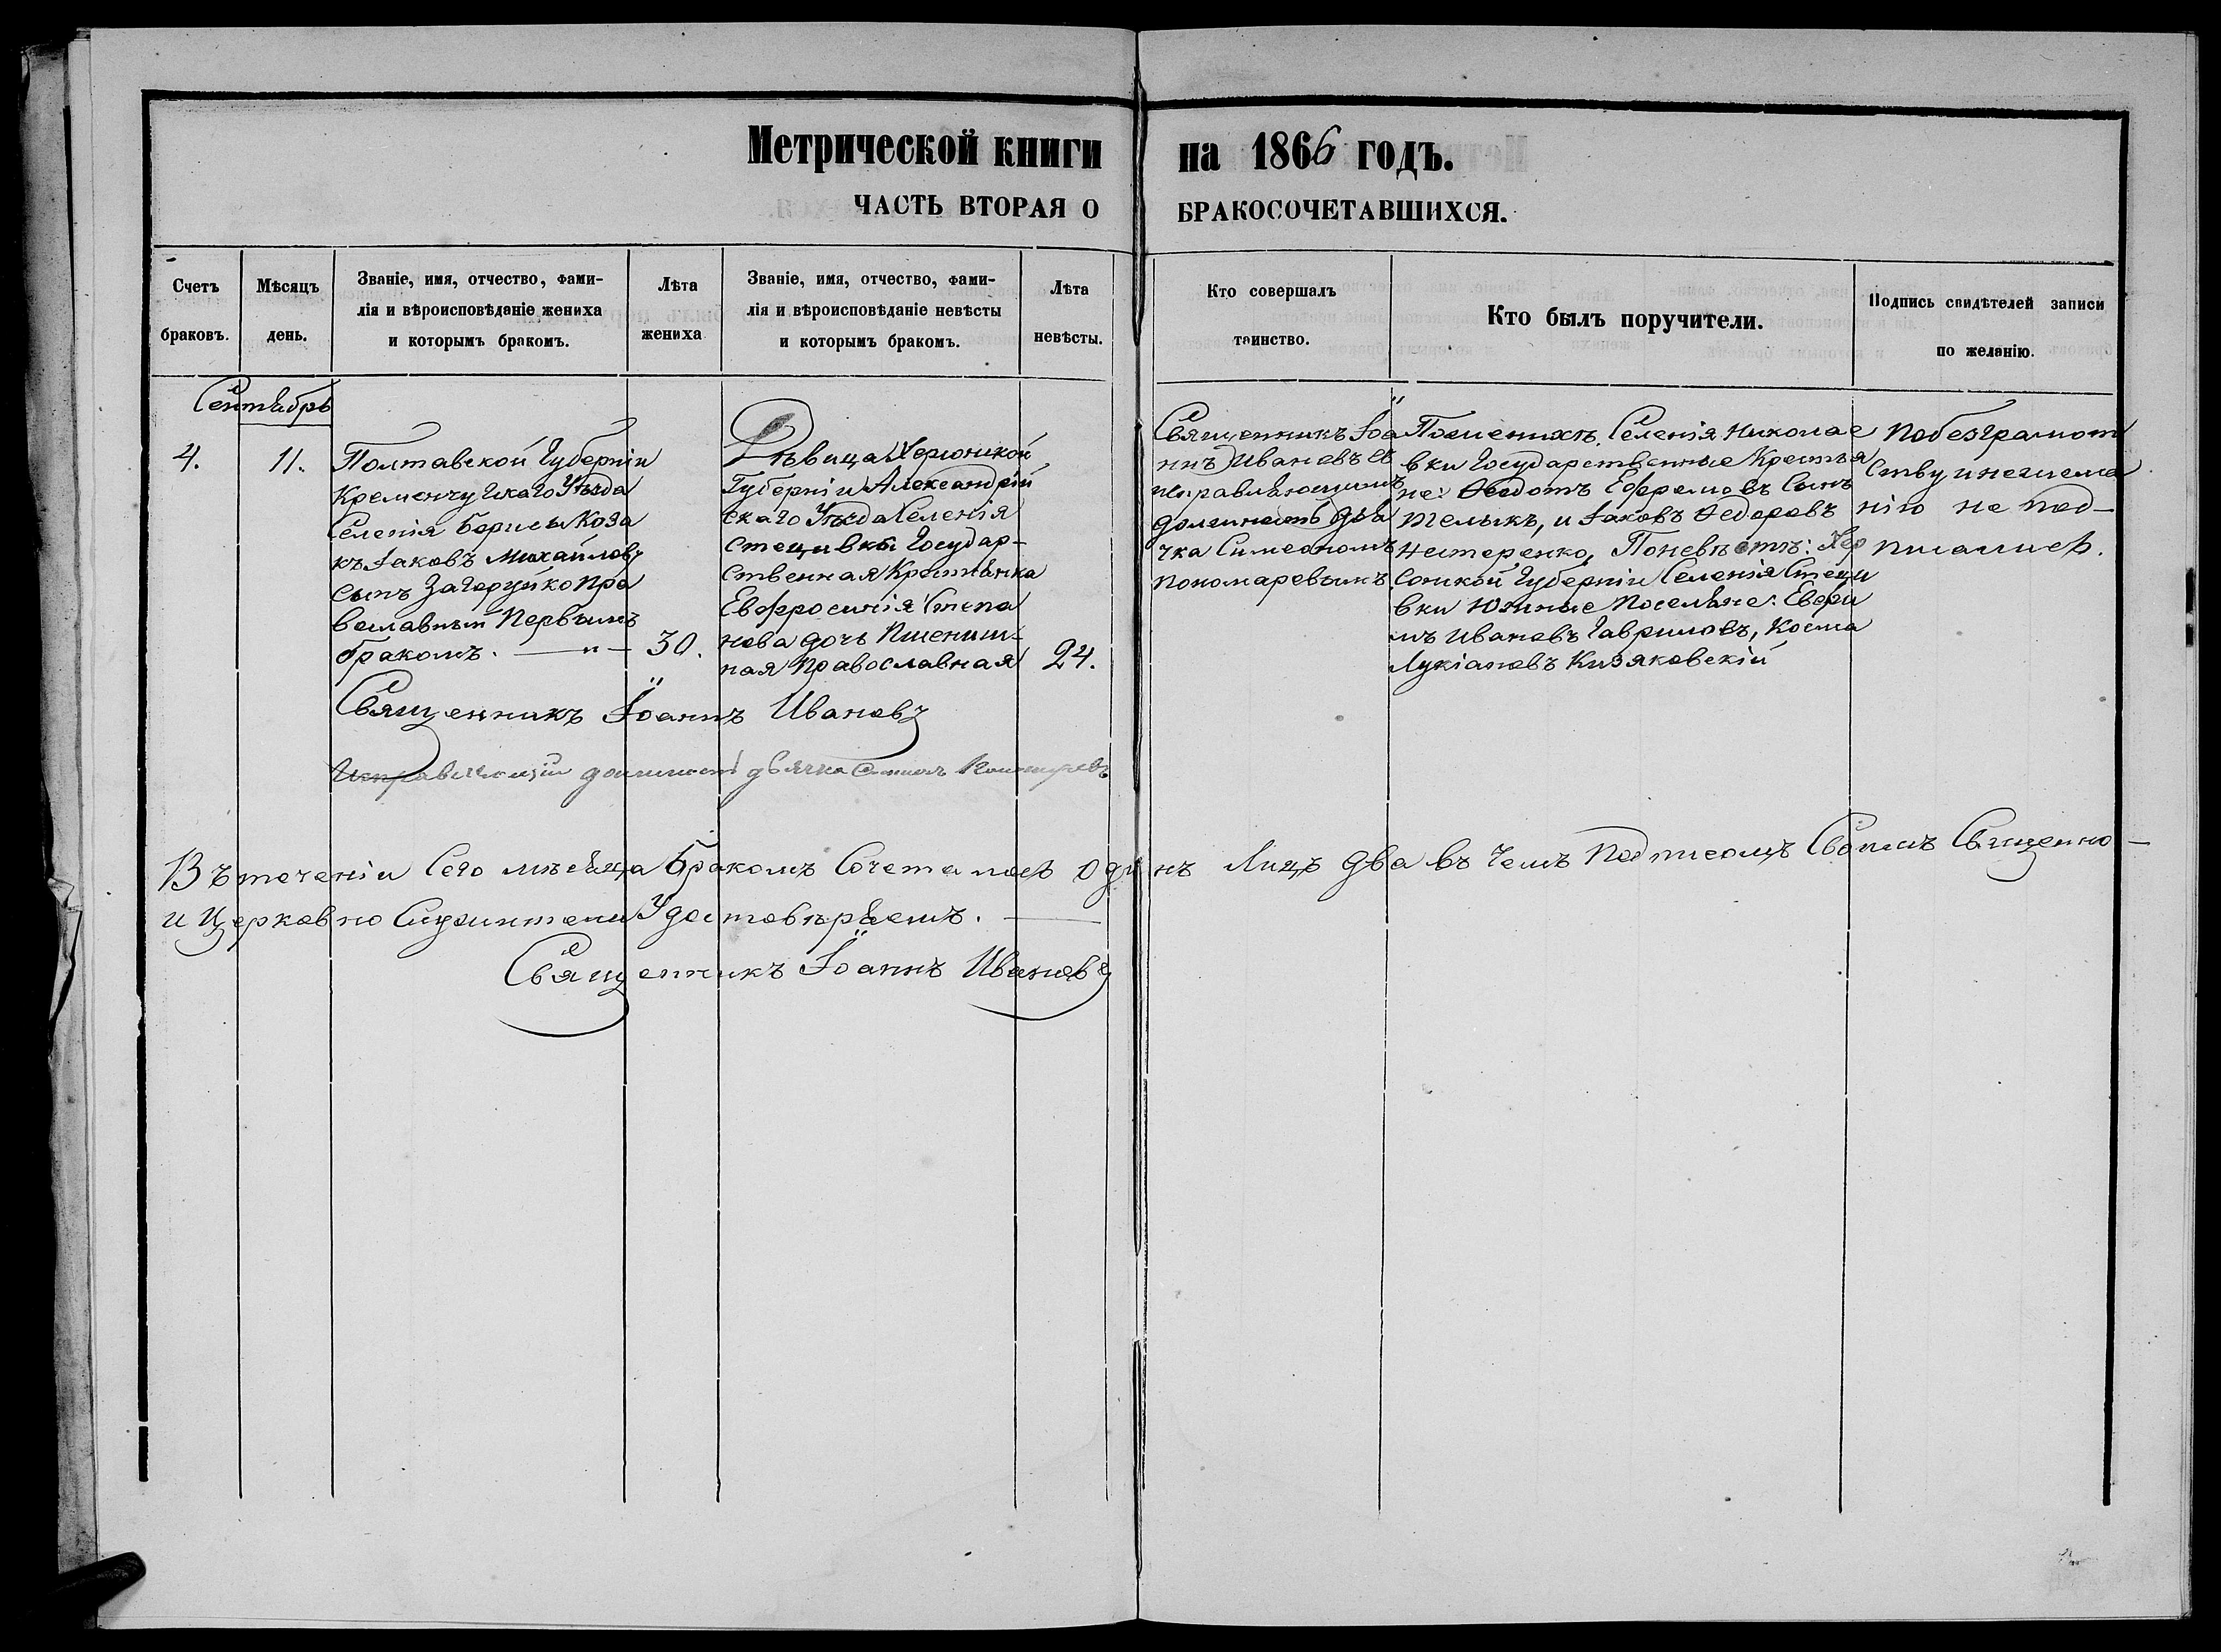 Метрической книги на 1866 годъ.
ЧАСТЬ ВТОРАЯ О БРАКОСОЧЕТАВШИХСЯ.
Счетъ
браковъ.
Мѣсяцъ
день.
Званіе, имя, отчество, фами-
лія и вѣроисповѣданіе жениха
и которымъ бракомъ.
Лѣта
жениха
Званіе, имя, отчество, фами-
лія и вѣроисповѣданіе невѣсты
и которымъ бракомъ.
Лѣта
невѣсты.
Кто совершалъ
таинство.
Кто былъ поручители.
Подпись свидѣтелей записи
по желанію.
Сентябрь
4.
11.
Полтавской Губерніи
Кременчугскаго Уѣзда
Селенія Борисы Коза
къ Іаковъ Михайловъ
сынъ Загоруйко Пра
вославный Первымъ
бракомъ.
30.
Дѣвица Херсонской
Губерніи Александрій
скаго Уѣзда Селенія
Стецивки Государ-
ственная Крестьянка
Евфросинія Степа
нова дочь Пшенич-
ная Православная
24.
Священникъ Іоа
ннъ Ивановъ съ
исправляющимъ
должность дья
чка Симеономъ
Пономаревымъ
По женихѣ: Селенія Николае
вки Государственные Крестья
не: Ѳеодотъ Ефремовъ Сынъ
Телыкъ, и Іаковъ Ѳедоровъ
Нестеренко, По невѣстѣ: Хер
сонской Губерніи Селенія Стеци
вки Южные Поселяне: Евфи
мъ Ивановъ Гавриловъ, Косма
Лукіановъ Кизяковскій
По безграмот
ству и неумѣ
нію не под-
писались.
Священникъ Іоаннъ Ивановъ
Исправляющій должность дьячка Симеонъ Пономаревъ
Въ теченіи Сего мѣсяца бракомъ Сочеталось одинъ Лицъ два въ чемъ Подписомъ Своимъ Священно-
и Церковно Служители Удостовѣряемъ.
Священникъ Іоаннъ Ивановъ